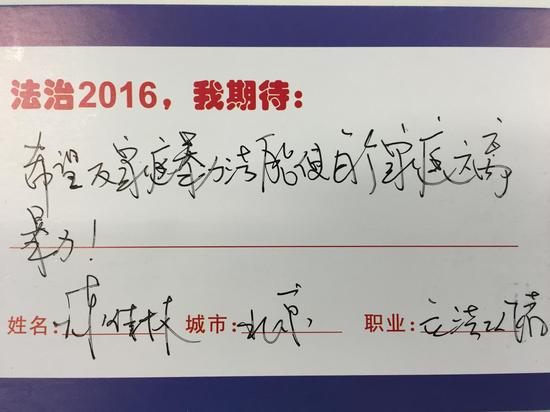 法治2016，我期待：
希望反家庭暴力法能使每个家庭远离
暴力！
姓名：陈佳林 城市：北京 职业：立法工作